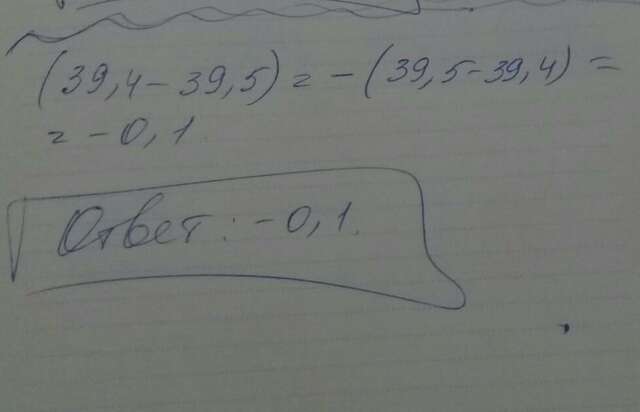 (39,4 - 39,5) = - (39,5 - 39,4) =
= - 0,1.
Ответ: - 0,1.